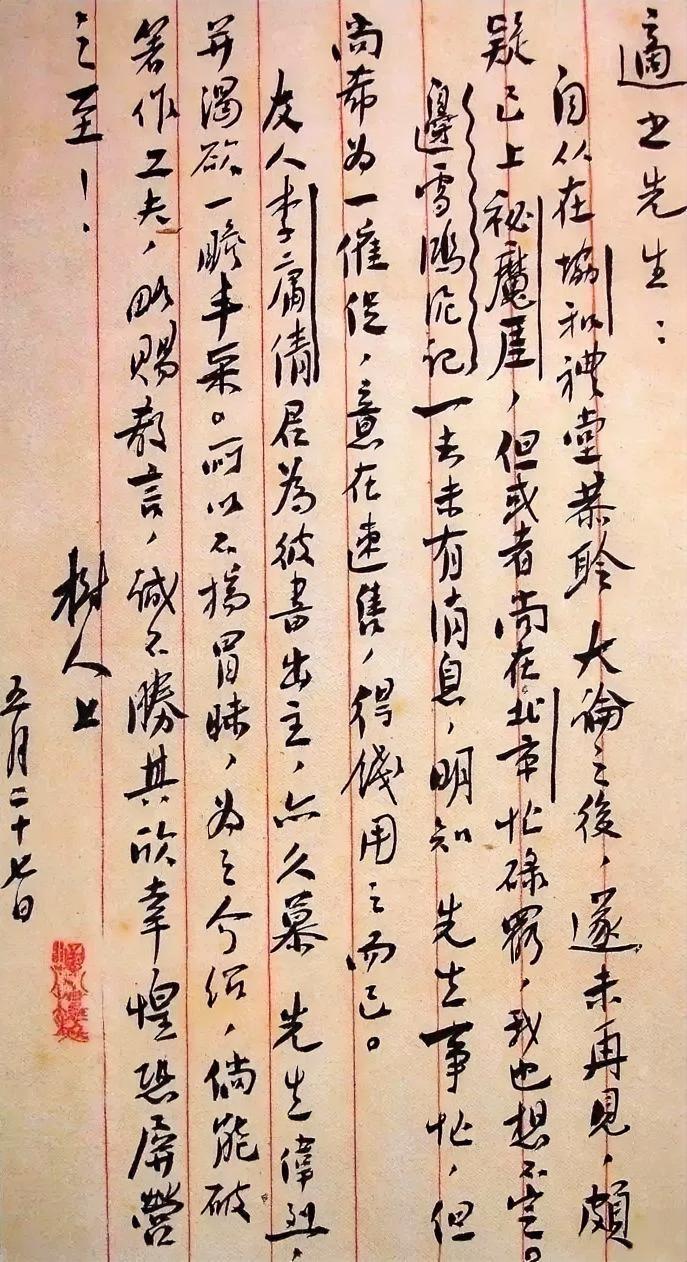 適之先生：
自从在協和禮堂恭聆 大論之後，遂未再見，頗
疑已上祕魔厓，但或者尚在北京忙碌罷，我也想不定。
邊雪鴻泥記一去未有消息，明知 先生事忙，但
尚希为一催促，意在速售，得錢用之而已。
友人李庸倩君為彼書出主，亦久慕 先生偉烈，
并渴欲一瞻丰采。所以不揣冒昧，为之介绍，倘能破
著作工夫，略賜教言，誠不勝其欣幸惶恐屏營
之至！
樹人上
五月二十七日